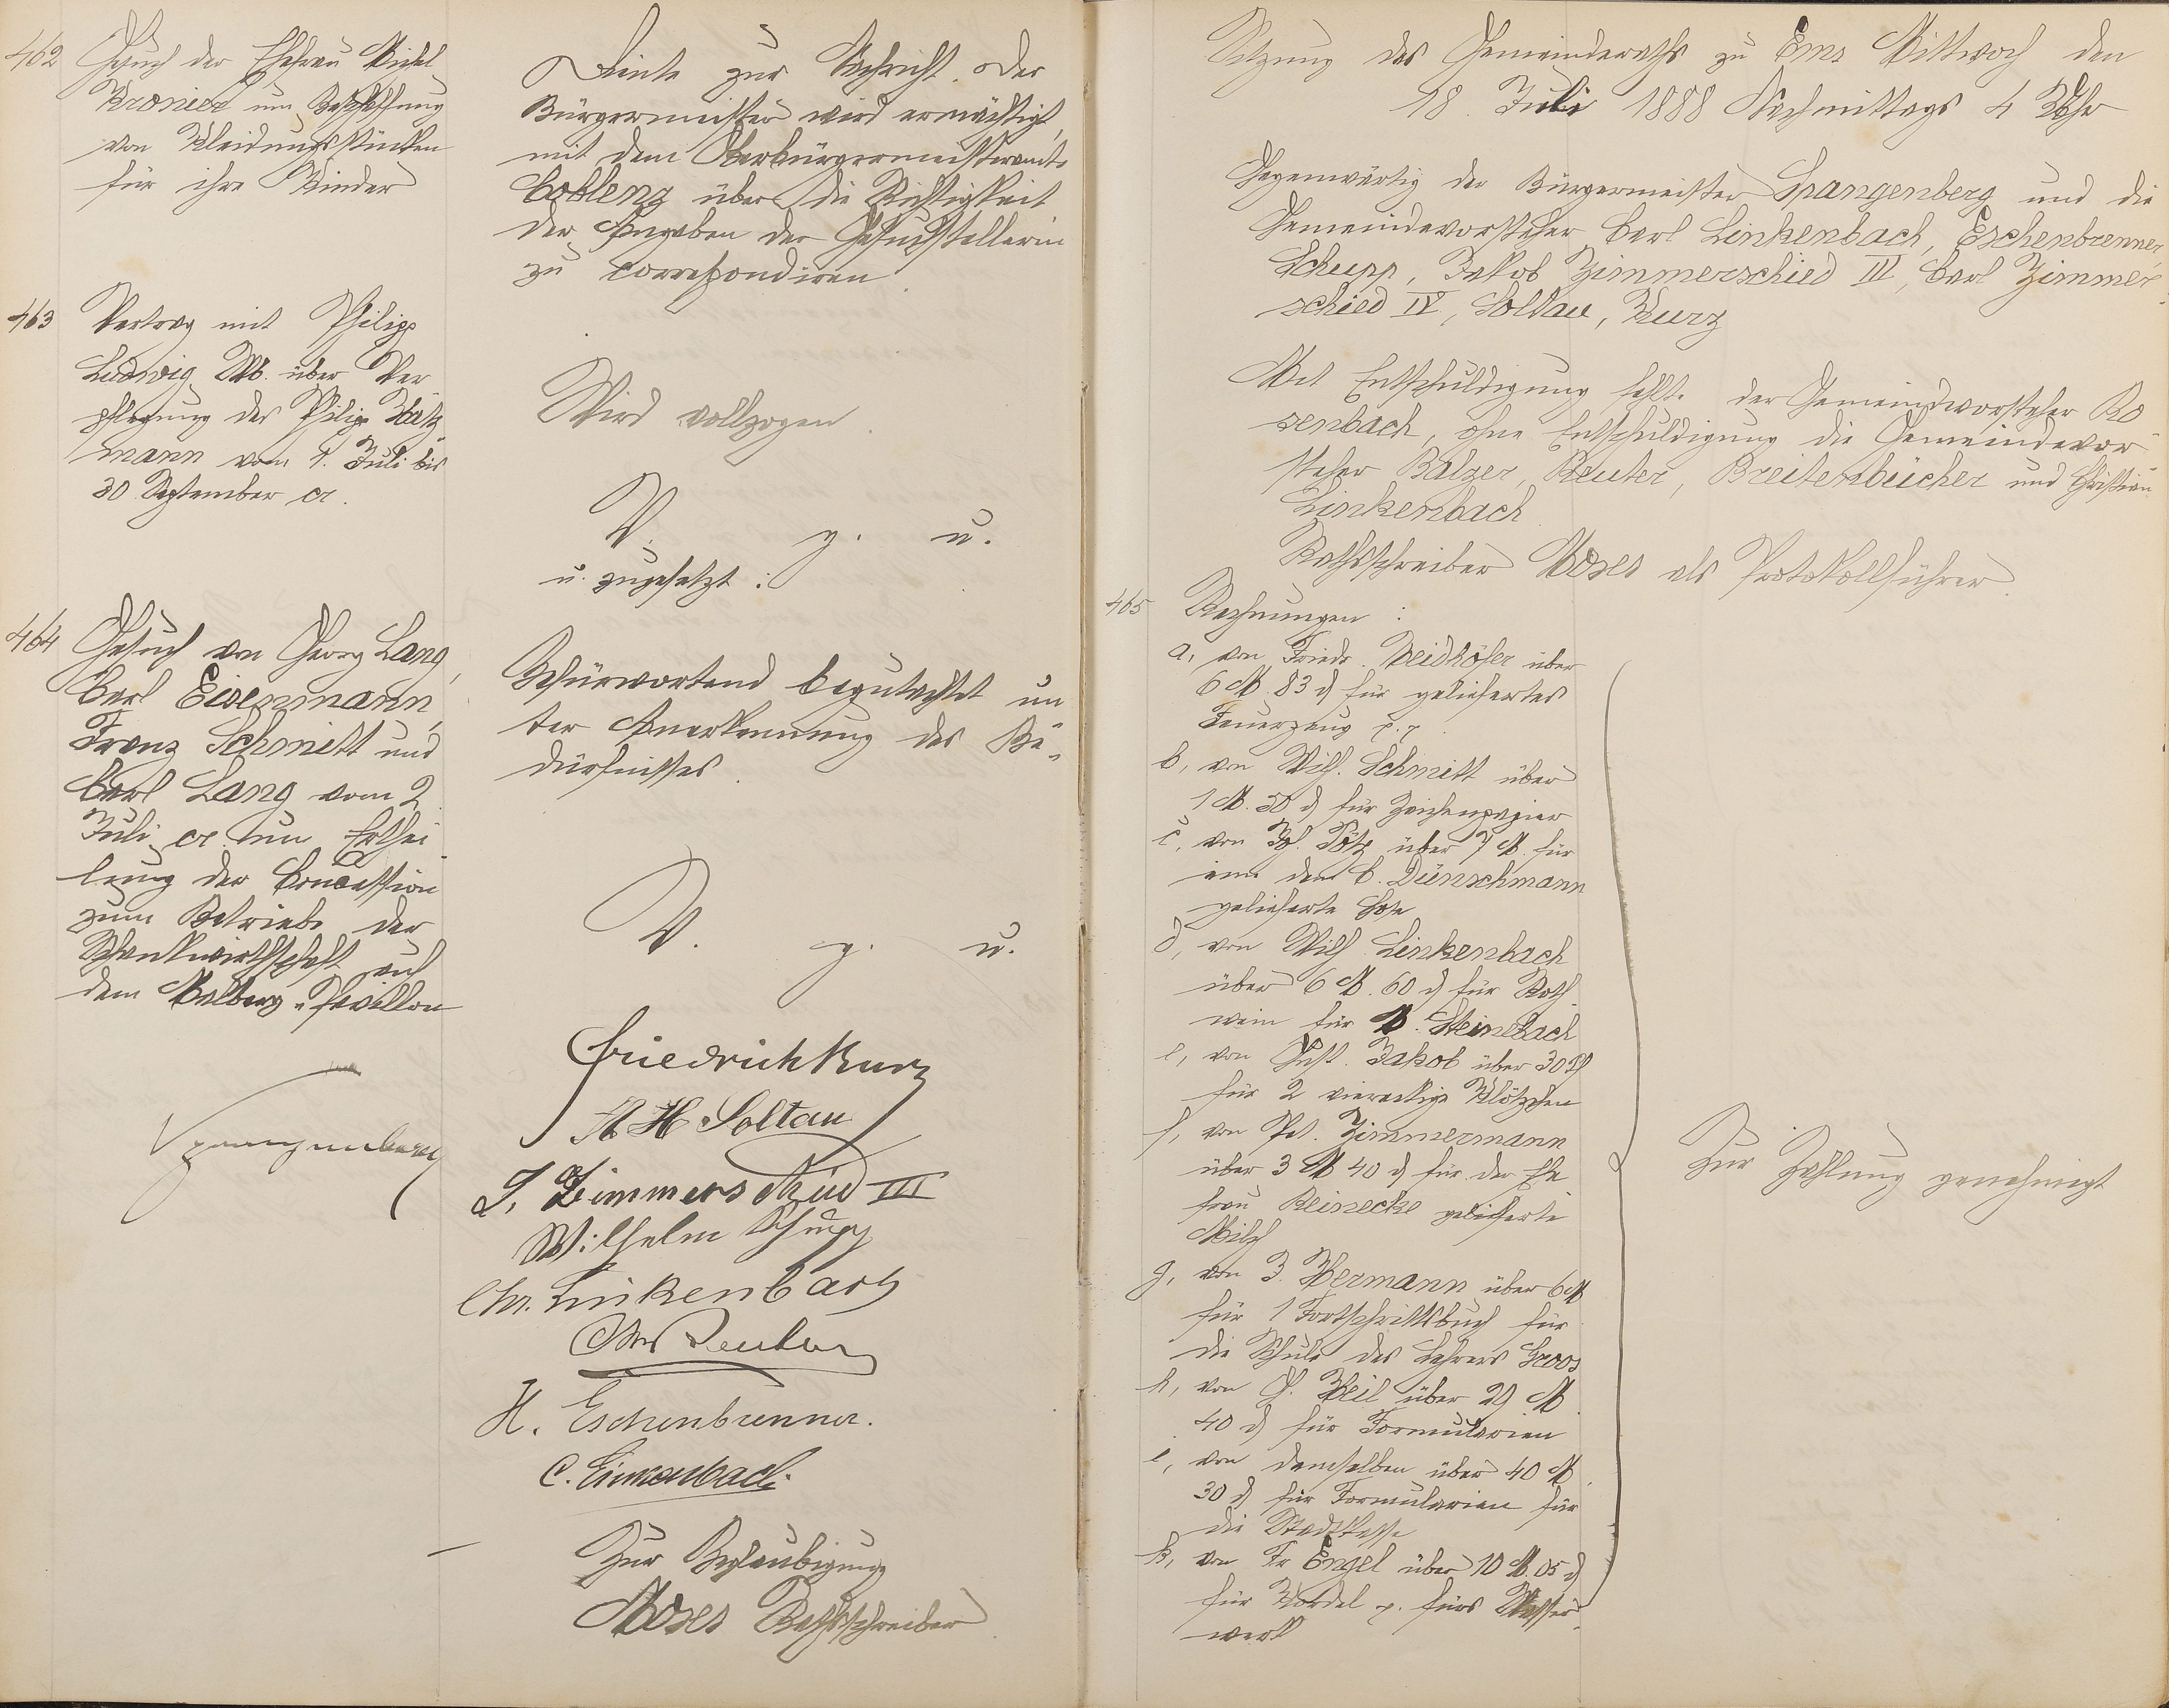 462
Gesuch der Ehefrau Michel
Kronier um Beschaffung
von Kleidungsstücken
für ihre Kinder
Diente zur Nachricht. Der
Bürgermeister wird ermächtigt,
mit dem Oberbürgermeisteramte
Coblenz über die Richtigkeit
der Angaben der Gesuchstellerin
zu correspondiren.
463
Vertrag mit Philipp
Ludwig Wb. über Ver-
pflegung des Philipp
mann vom 1. Juli bis
30. September cr.
Wird vollzogen.
V. g. u.
u. zugesetzt:
464
Gesuch von Georg Lang,
Carl Eisenmann,
Franz Schmitt und
Carl Lang vom 2.
Juli cr. um Erthei-
lung der Concession
zum Betriebe der
Schankwirthschaft auf
dem Malberg-Pavillon
Befürwortend begutachtet un-
ter Anerkennung des Be-
dürfnisses.
V. g. u.
Spangenberg
Friedrich Kurz
A H Soltau
J. Zimmerschied III
Wilhelm Schupp
Chr. Linkenbach
Reuter
H. Eschenbrenner.
C. Linkenbach
Zur Beglaubigung
Moses Rathsschreiber
Sitzung des Gemeinderaths zu Ems Mittwoch den
18. Juli 1888 Nachmittags 4 Uhr
Gegenwärtig der Bürgermeister Spangenberg und die
Gemeindevorsteher Carl Linkenbach, Eschenbrenner,
Schupp, Jakob Zimmerschied III, Carl Zimmer-
schied IV, Soltau, Kurz
Mit Entschuldigung fehlte der Gemeindevorsteher Ro-
senbach, ohne Entschuldigung die Gemeindevor-
steher Balzer, Reuter, Breitenbücher und Christian
Linkenbach
Rathsschreiber Moses als Protokollführer.
465
Rechnungen:
a, von Friedr. Weidhöfer über
6 M. 83 d für geliefertes
Feuerzeug p.p.
b, von Wilh. Schmitt über
1 M. 50 d für Zeichenpapier
c, von Pötz über 7 M. für
eine dem C. Dünschmann
gelieferte Hose
d, von Wilh Linkenbach
über 6 M. 60 d für Roth-
wein für Steinebach
e, von Gust. Jakob über 30 d
für 2 viereckige Klötzchen
f, von Pet. Zimmermann
über 3 M 40 d für der Ehe-
frau Reinecke gelieferte
Milch
g, von J. Hermann über 6 M
für 1 Fortschrittsbuch für
die Schule des Lehrers Groos
h, von P. Weil über 29 M.
40 d für Formularien
i, von demselben über 40 M.
30 d für Formularien für
die Stadtkasse
k, von Fr Engel über 10 M. 05 d
für Kordel p. fürs Wasser-
werk
Zur Zahlung genehmigt